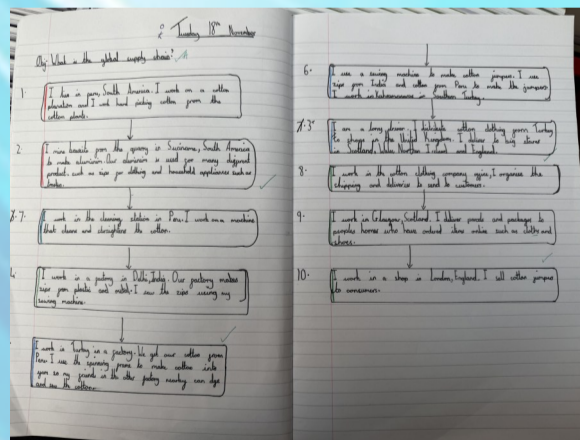 Tuesday 18th November
Obj: What is the global supply chain?
1.
I live in peru, South America. I work on a cotton
plantation and I work hard picking cotton from the
cotton plants.
2.
I mine bauxite from the quarry in Suriname, South America
to make aluminium. Our aluminium is used for many different
products such as zips for clothing and household appliances such as
7.
I work in the cleaning station in Peru. I work on a machine
that cleans and straightens the cotton.
I work in a factory in Delhi, India. Our factory makes
zips from plastic and metal. I sew the zips using my
sewing machine.
I work in Turkey in a factory. We get our cotton from
Peru. I use the spinning frame to make cotton into
yarn so my friends in the other factory nearby can dye
and the cotton.
6.
I use a sewing machine to make cotton jumpers. I use
zips from India and cotton yarn from Peru to make the jumpers.
I work in Kahramanmaras in Southern Turkey.
3.
I am a lorry driver. I deliver cotton clothing from Turkey
to shops in the United Kingdom. I deliver to big stores
in Scotland, Wales, Northern Ireland and England.
8.
I work in the cotton clothing company office, I organise the
shipping and deliveries to send to customers.
9.
I work in Glasgow, Scotland. I deliver parcels and packages to
peoples homes who have ordered items online such as clothes and
shoes.
10.
I work in a shop in London, England. I sell cotton jumpers
to consumers.